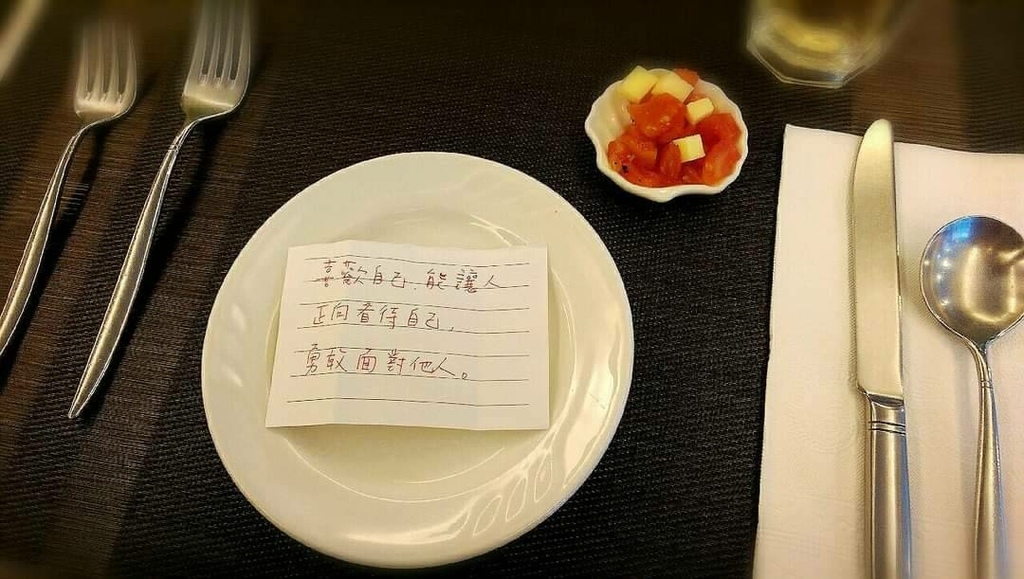 喜歡自己,能讓人
正向看待自己,
勇敢面對他人。